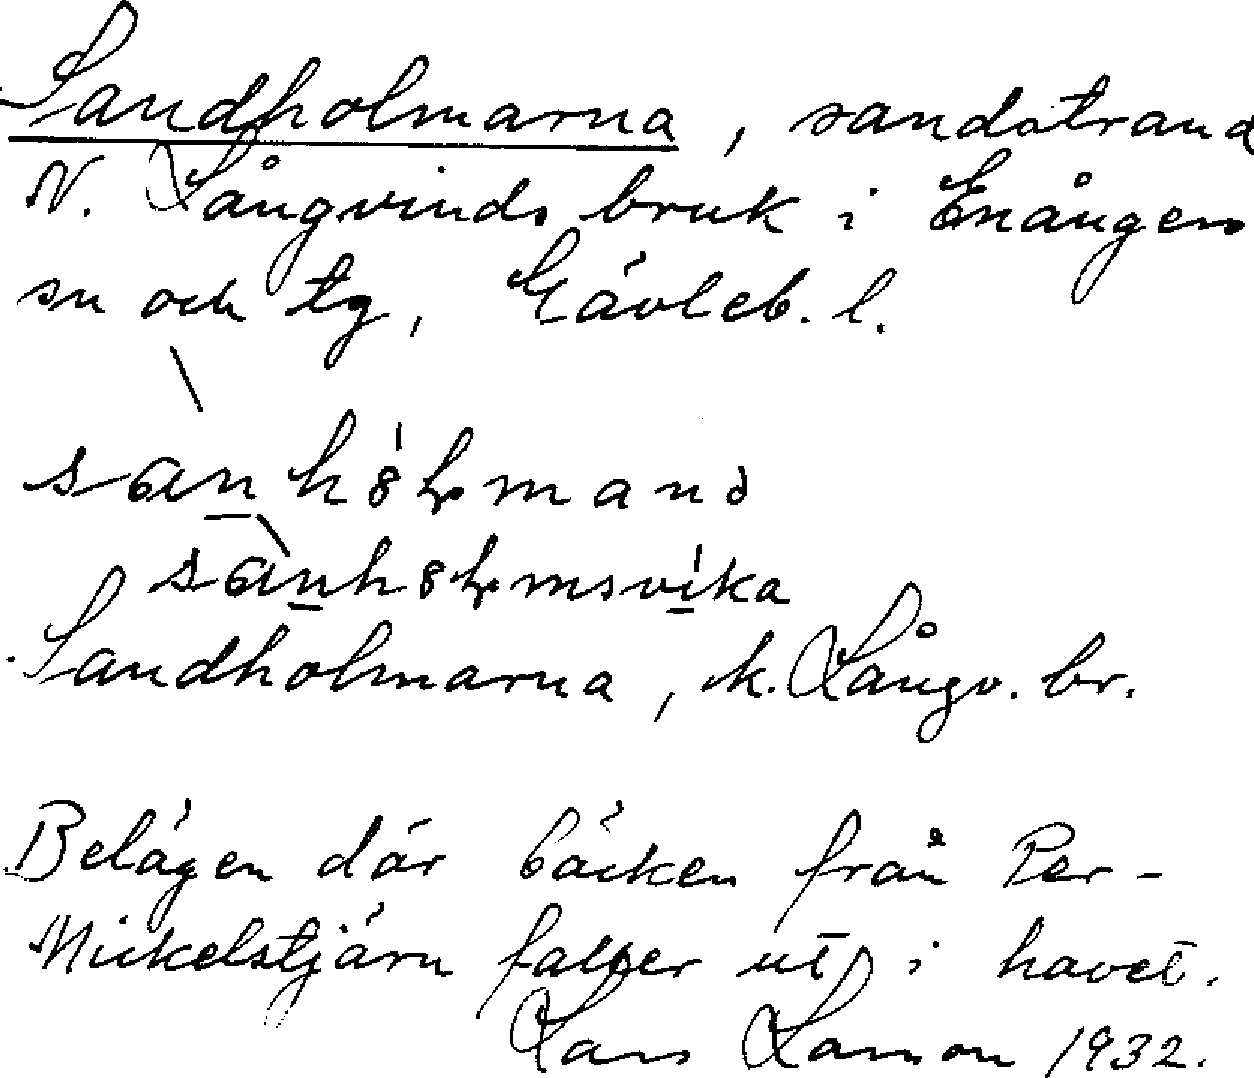 Sandholmarna, sandstrand
N. Långvinds bruk i Enångers
sn och tg, Gävleb. l.
Sandholmarna, k. Långv. br.
Belägen där bäcken från Per-
Mickelstjärn faller ut i havet.
Lars Larsson 1932.